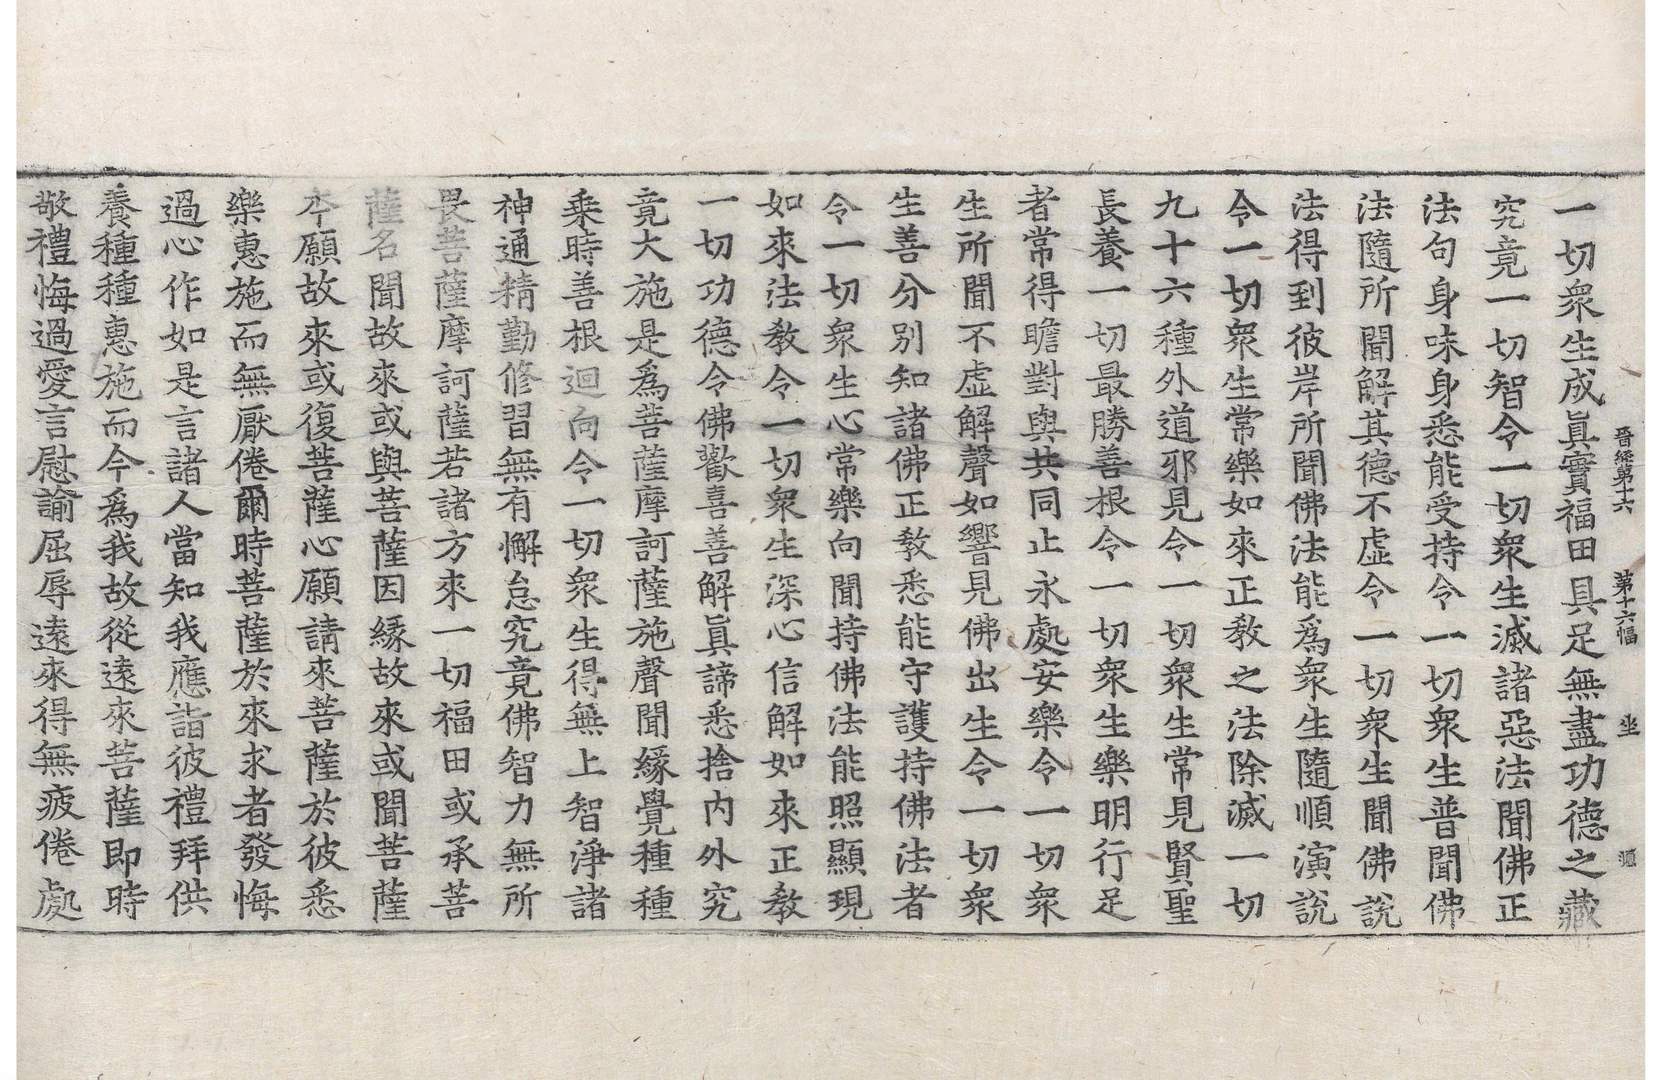 晉経第十六 第十六幅 坐
一切衆生成眞實福田具足無盡功德之藏
究竟一切智令一切衆生滅諸惡法聞佛正
法句身味身悉能受持令一切衆生普聞佛
法隨所聞解其德不虛令一切衆生聞佛說
法得到彼岸所聞佛法能爲衆生隨順演說
令一切衆生常樂如來正教之法除滅一切
九十六種外道邪見令一切衆生常見賢聖
長養一切最勝善根令一切衆生樂明行足
者常得瞻對與共同止永處安樂令一切衆
生所聞不虛解聲如響見佛出生令一切衆
生善分別知諸佛正教悉能守護持佛法者
令一切衆生心常樂向聞持佛法能照顯現
如來法教令一切衆生深心信解如來正教
一切功德令佛歡喜善解眞諦悉捨内外究
竟大施是爲菩薩摩訶薩施聲聞緣覺種種
乗時善根迴向令一切衆生得無上智淨諸
神通精勤修習無有懈怠究竟佛智力無所
畏菩薩摩訶薩若諸方來一切福田或承菩
薩名聞故來或與菩薩因緣故來或聞菩薩
夲願故來或復菩薩心願請來菩薩於彼悉
樂惠施而無厭倦爾時菩薩於來求者發悔
過心作如是言諸人當知我應詣彼禮拜供
養種種惠施而今爲我故從遠來菩薩即時
敬禮悔過愛言慰諭屈辱遠來得無疲倦處